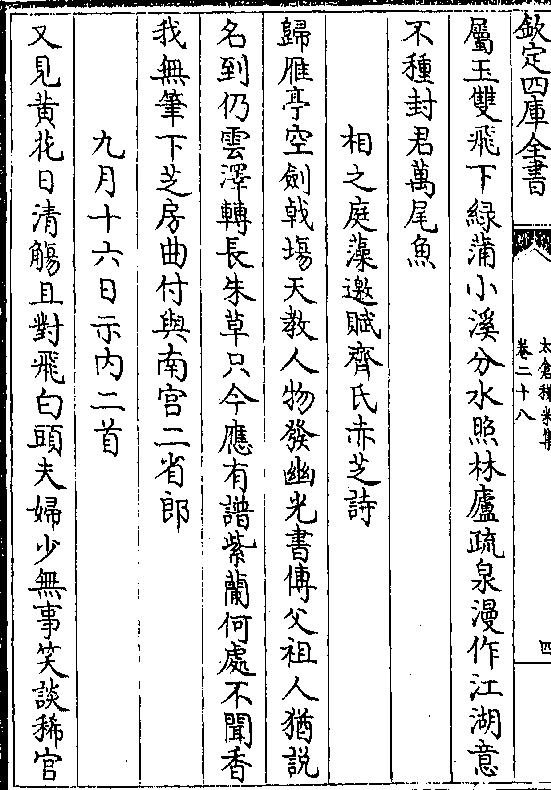 欽定四庫全書
太倉稊米集
卷二十八
四
屬玉雙飛下綠蒲小溪分水照林廬疏泉漫作江湖意
不種封君萬尾魚
相之庭藻邀賦齊氏赤芝詩
歸雁亭空劍戟塲天教人物發幽光書傳父祖人猶說
名到仍雲澤轉長朱草只今應有譜紫蘭何處不聞香
我無筆下芝房曲付與南宫二省郎
九月十六日示内二首
又見黄花日清觴且對飛白頭夫婦少無事笑談稀官